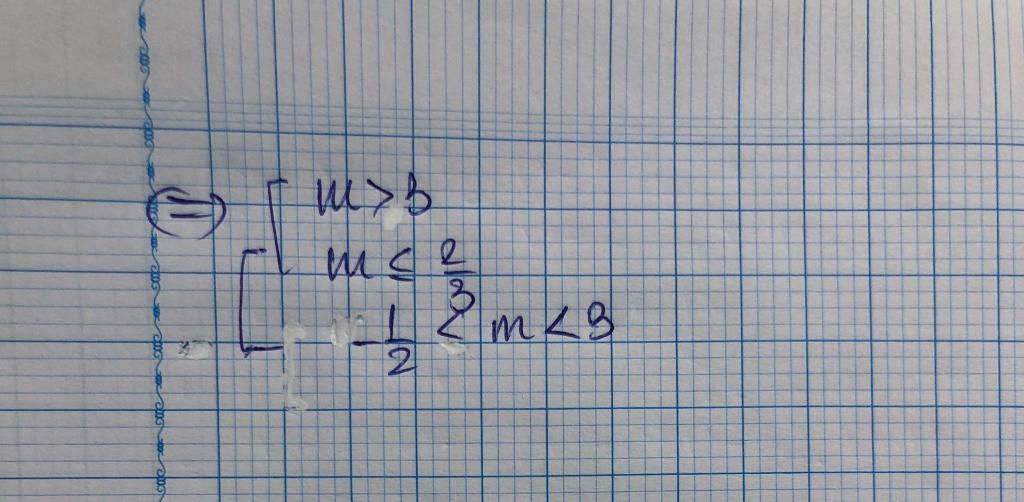 ⇔ [ m > 3
[ m ≤ 2/3
-1/2 < m < 3